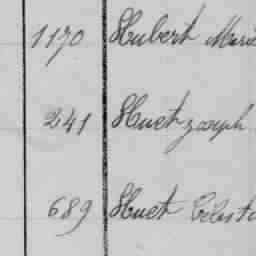 1170 Hubert Marie
241 Huet Joseph
689 Huet Célest